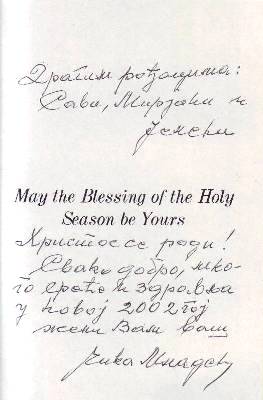 Драгим рођацима:
Сави, Мирјани и
Јелени
May the Blessing of the Holy
Season be Yours
Христос се роди!
Свако добро, мно-
го среће и здравља
у новој 2002гој
жели Вам ваш
Чика Младен